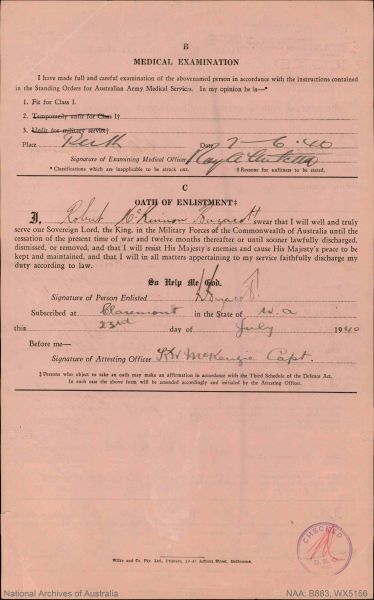 B
MEDICAL EXAMINATION
I have made full and careful examination of the abovenamed person in accordance with the instructions contained
in the Standing Orders for Australian Army Medical Services. In my opinion he is—*
1. Fit for Class I.
2. Temporarily unfit for Class I†
3. Unfit for military service†
Place Perth Date 7-6-40
Signature of Examining Medical Officer
* Classifications which are inapplicable to be struck out. † Reasons for unfitness to be stated.
C
OATH OF ENLISTMENT‡
I, Robert McKinnon swear that I will well and truly
serve our Sovereign Lord, the King, in the Military Forces of the Commonwealth of Australia until the
cessation of the present time of war and twelve months thereafter or until sooner lawfully discharged,
dismissed, or removed, and that I will resist His Majesty's enemies and cause His Majesty's peace to be
kept and maintained, and that I will in all matters appertaining to my service faithfully discharge my
duty according to law.
So Help Me God.
Signature of Person Enlisted
Subscribed at Claremont in the State of W.A
this 23rd day of July 1940
Before me—
Signature of Attesting Officer McKenzie Capt.
‡ Persons who object to take an oath may make an affirmation in accordance with the Third Schedule of the Defence Act.
In such case the above form will be amended accordingly and initialed by the Attesting Officer.
CHECKED
Wilke and Co. Pty. Ltd., Printers, 19-47 Jeffcott Street, Melbourne.
National Archives of Australia
NAA: B883, WX5156